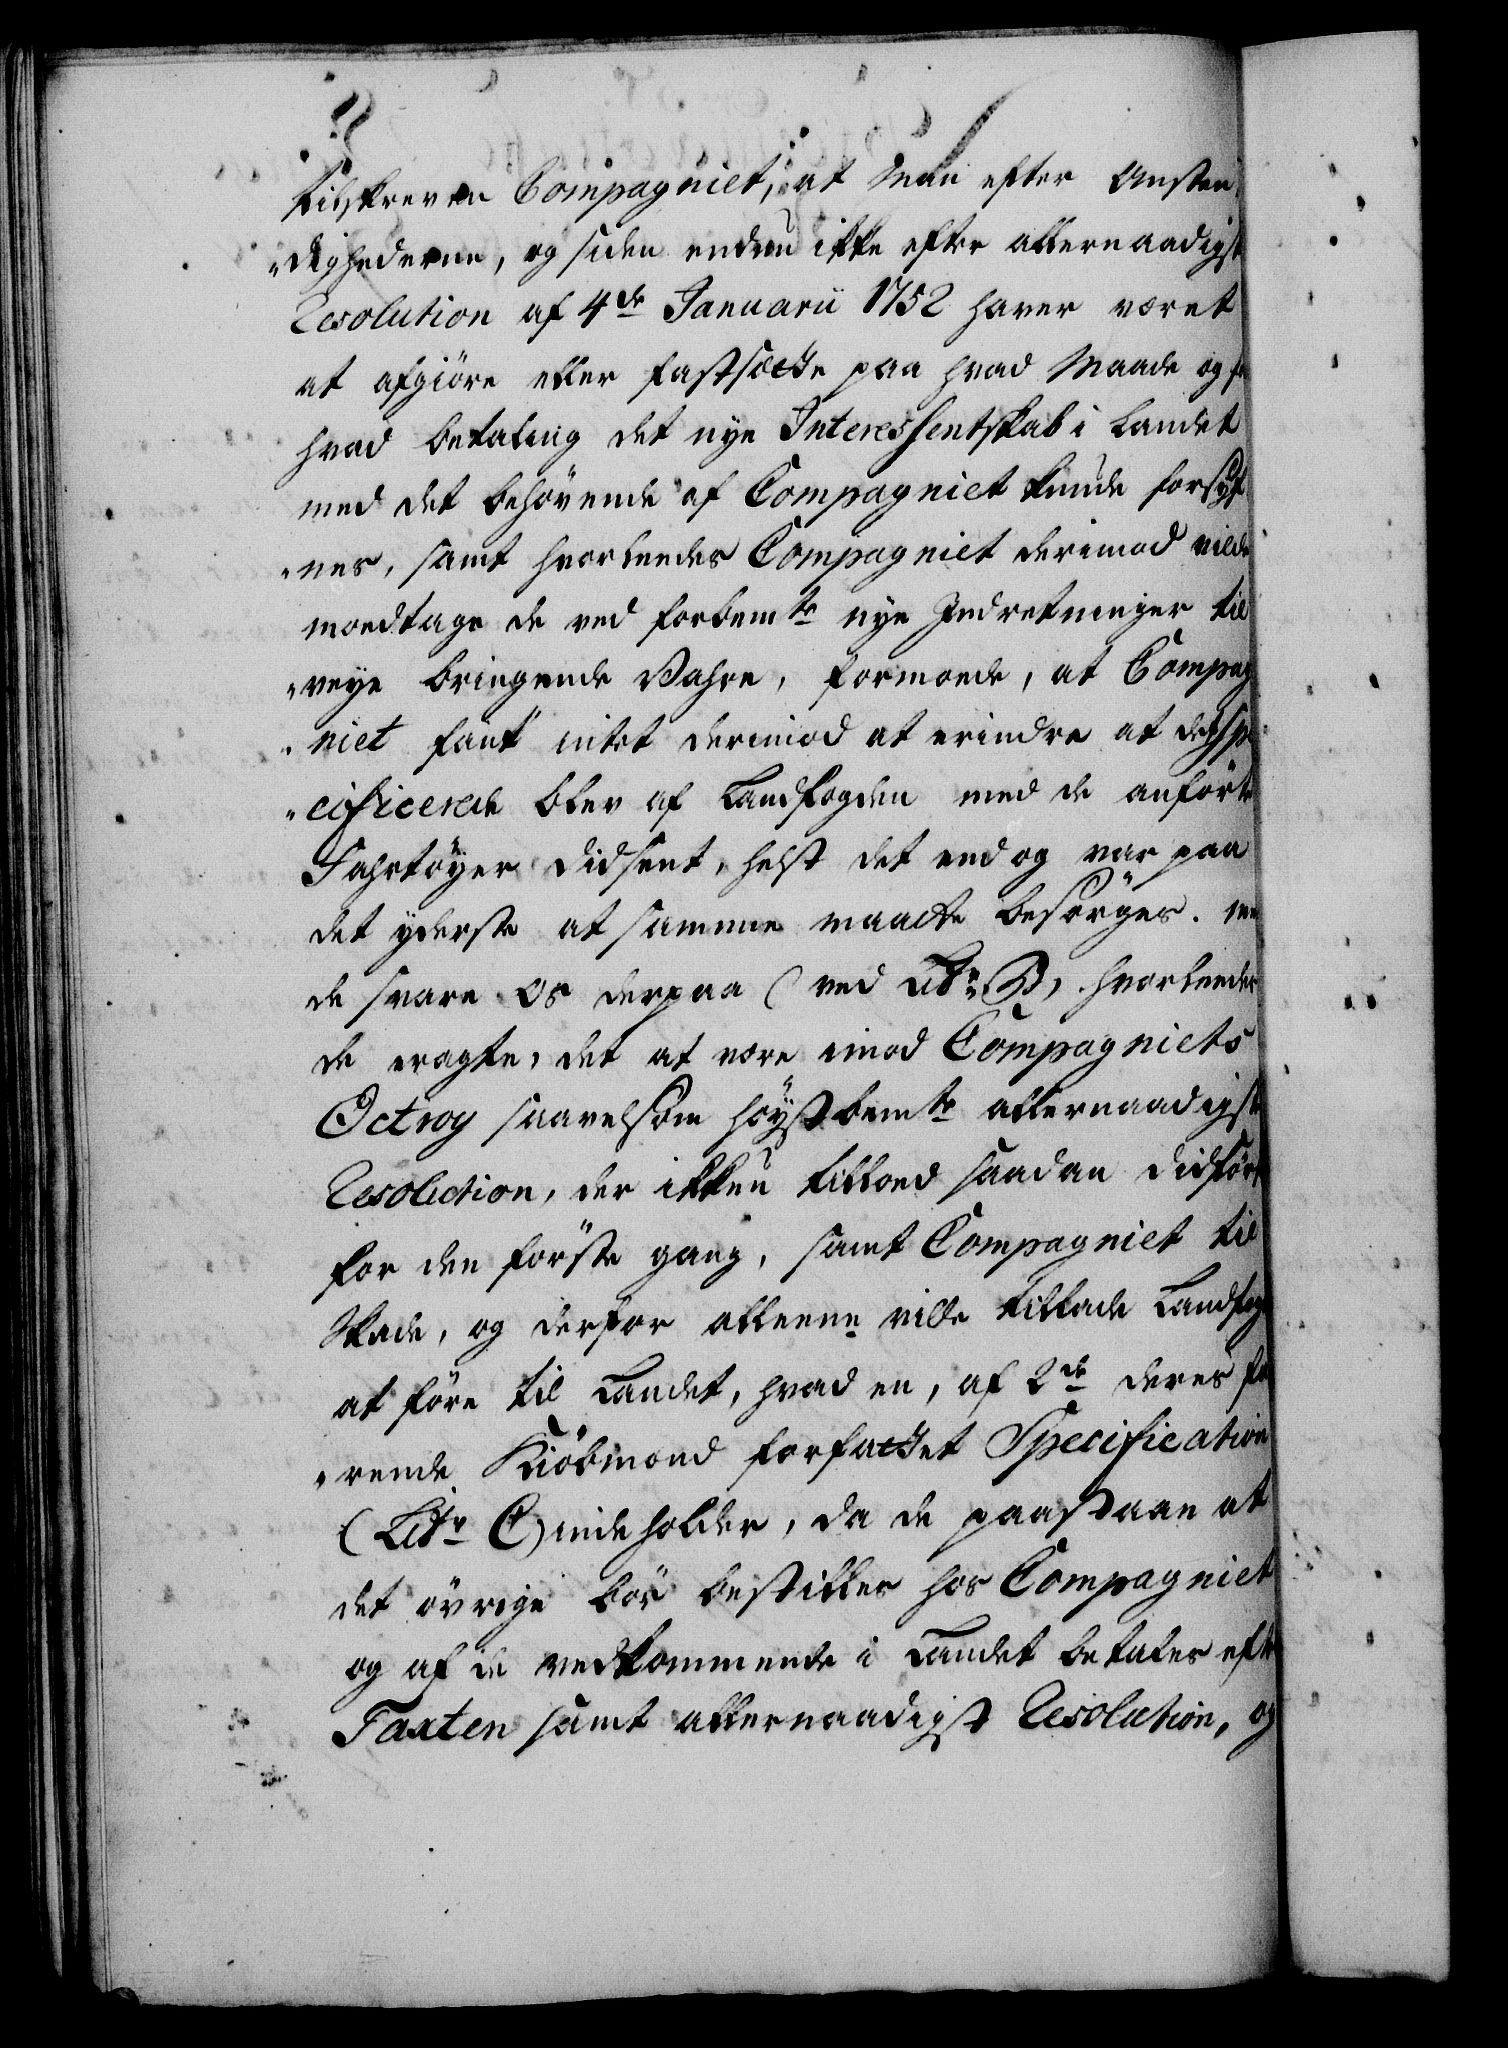 tilskreven Compagniet, at Man efter Omstæn,
„dighederne, og siden endnu ikke efter allernaadigst
Resolution af 4de Januarii 1752 haver været
at afgiöre eller fastsætte paa hvad Maade og for
hvad betaling det nye Interessentskab i Landet
med det behövende af Compagniet kunde forsÿ¬
„nes, samt hvorledes Compagniet derimod vilde
modtage de ved forbemte nye Indretninger til
„veye bringende Vahre, formoede, at Compag
„niet fant intet derimod at erindre at det Spe
„cificerede blev af Landfogden med de anförte
Fahrtöyer didsent, helst det end og var paa
det yderste at samme maatte besörges. men
de svare os derpaa (ved Litr B), hvorledes
de eragte, det at være imod Compagniets
Octroy saavelsom höystbemte allernaadigste
Resolution, der ikkun tillod saadan didförsel
for den förste gang, samt Compagniet til
Skade, og derfor alleene ville tillade Landfog
at före til Landet, hvad en, af 2de deres fa
„rende Kiöbmænd forfattet Specification
(Litr C) indeholder, da de paastaae at
det övrige bör bestilles hos Compagniet
og af de vedkommende i Landet betales efter
Taxten samt allernaadigst Resolution, og